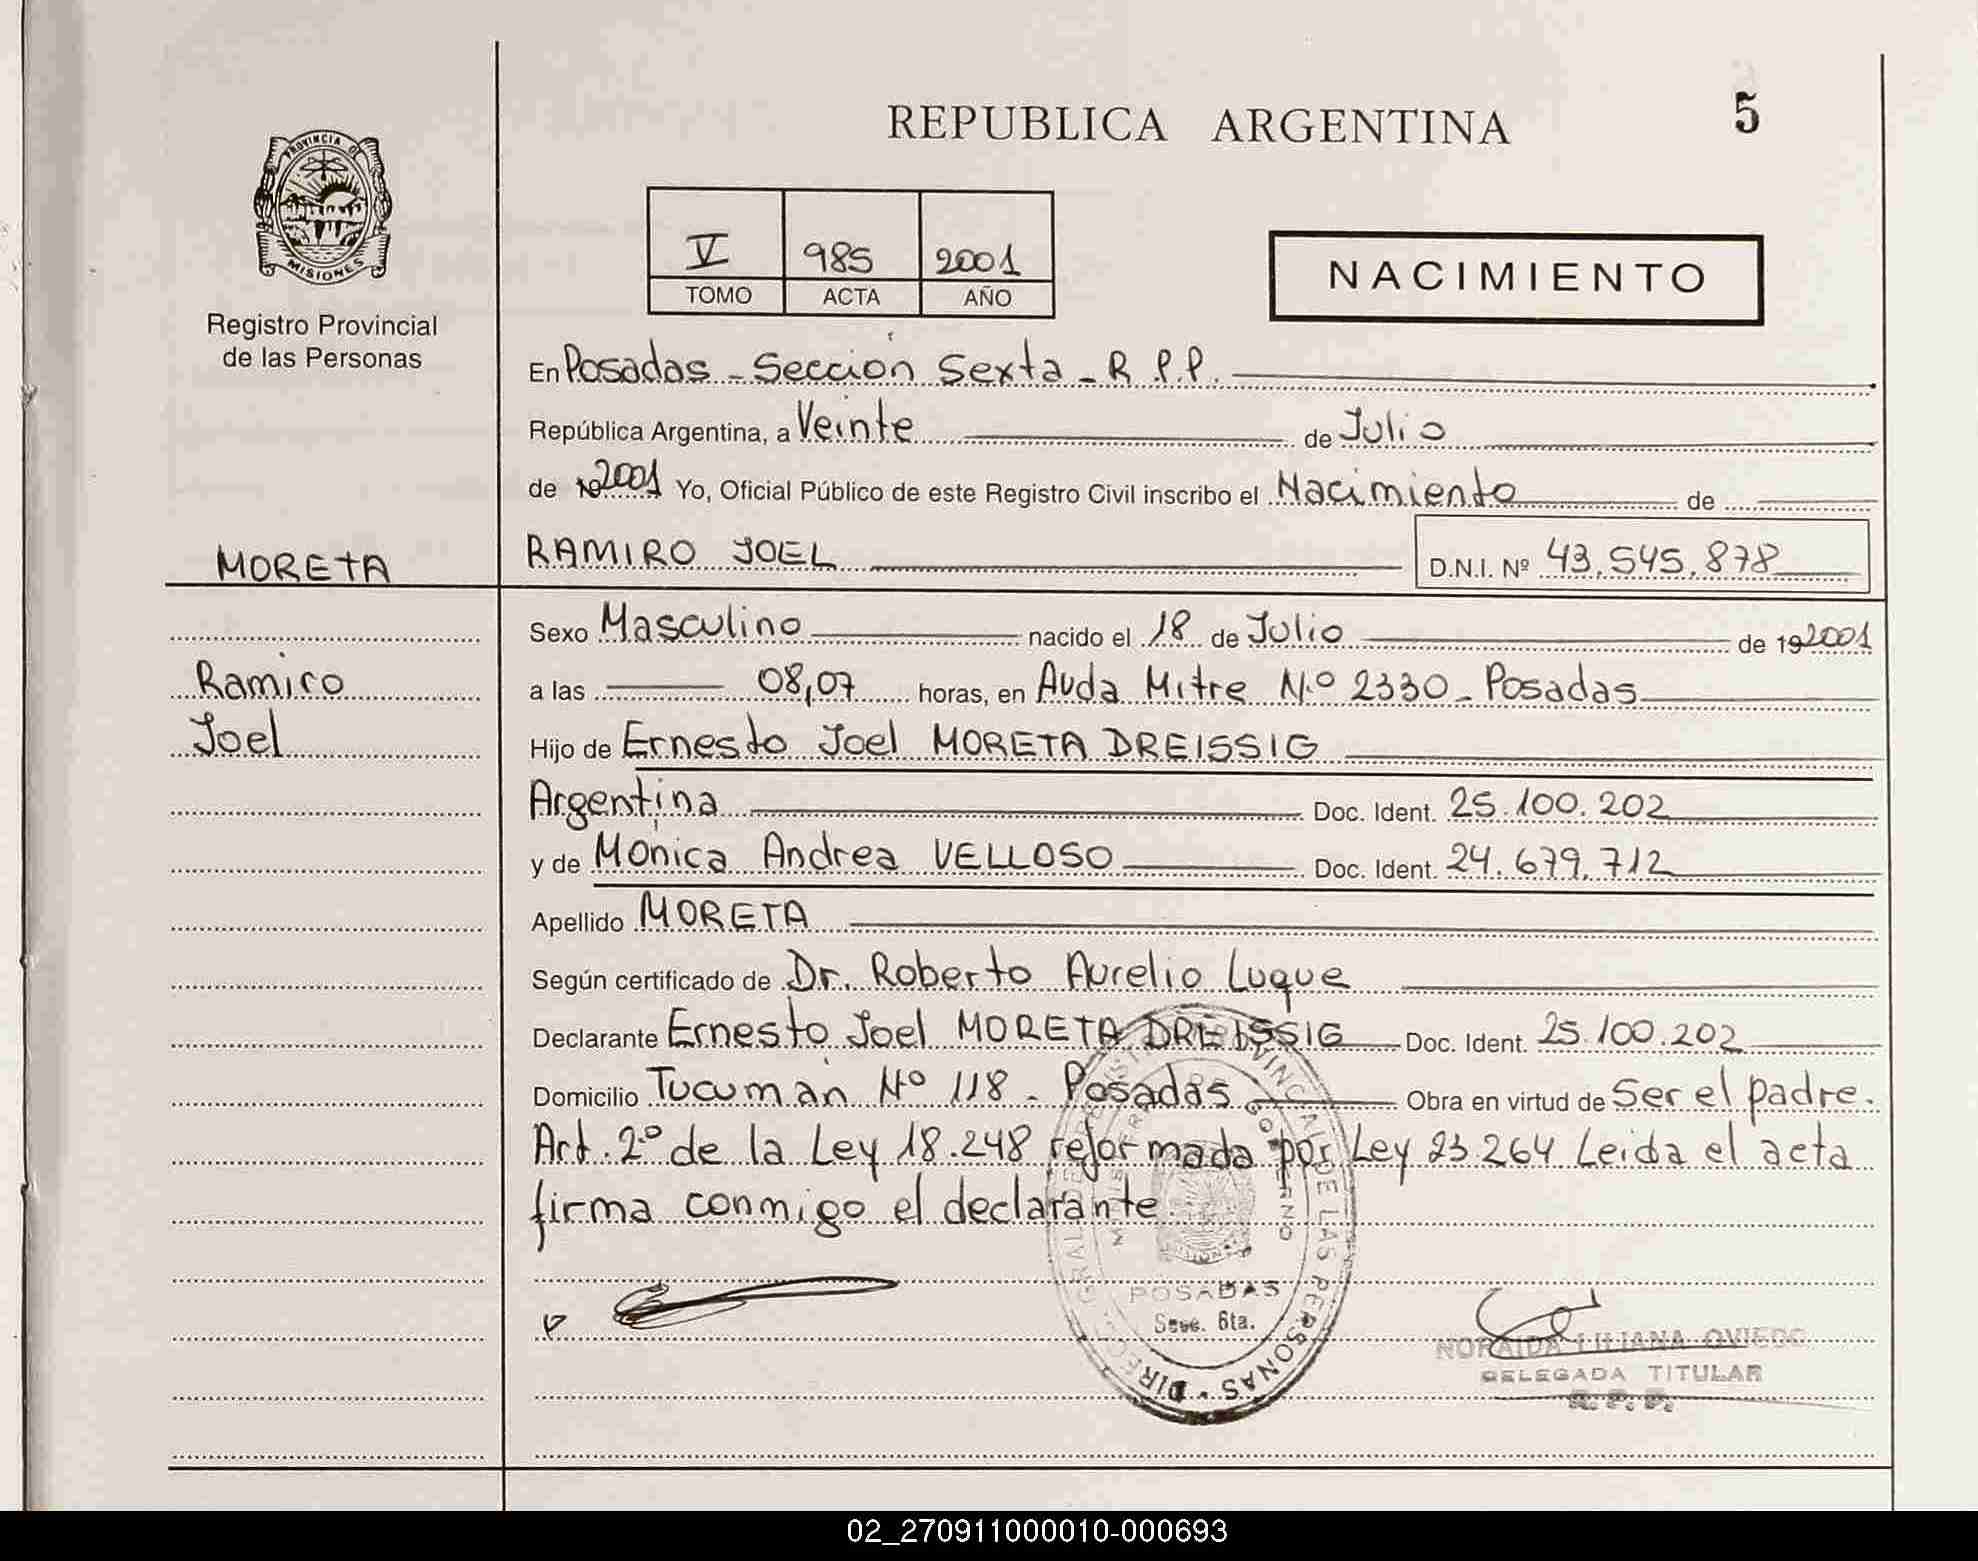 REPUBLICA ARGENTINA
5
PROVINCIA DE
MISIONES
Registro Provincial
de las Personas
V 985 2001
TOMO ACTA AÑO
NACIMIENTO
En Posadas - Sección Sexta - R.P.P.
República Argentina, a Veinte de Julio
de 192001 Yo, Oficial Público de este Registro Civil inscribo el Nacimiento de
MORETA
RAMIRO JOEL D.N.I. Nº 43.545.878
Sexo Masculino nacido el 18 de Julio de 192001
Ramiro
a las 08,07 horas, en Avda Mitre N.º 2330 - Posadas
Joel
Hijo de Ernesto Joel MORETA DREISSIG
Argentina Doc. Ident. 25.100.202
y de Mónica Andrea VELLOSO Doc. Ident. 24.679.712
Apellido MORETA
Según certificado de Dr. Roberto Aurelio Luque
Declarante Ernesto Joel MORETA DREISSIG Doc. Ident. 25.100.202
Domicilio Tucumán Nº 118 - Posadas Obra en virtud de Ser el padre.
Art. 2º de la Ley 18.248 reformada por Ley 23.264 Leida el acta
firma conmigo el declarante
POSADAS
Secc. 6ta.
NORAIDA LILIANA OVIEDO
DELEGADA TITULAR
R. P. P.
02_270911000010-000693